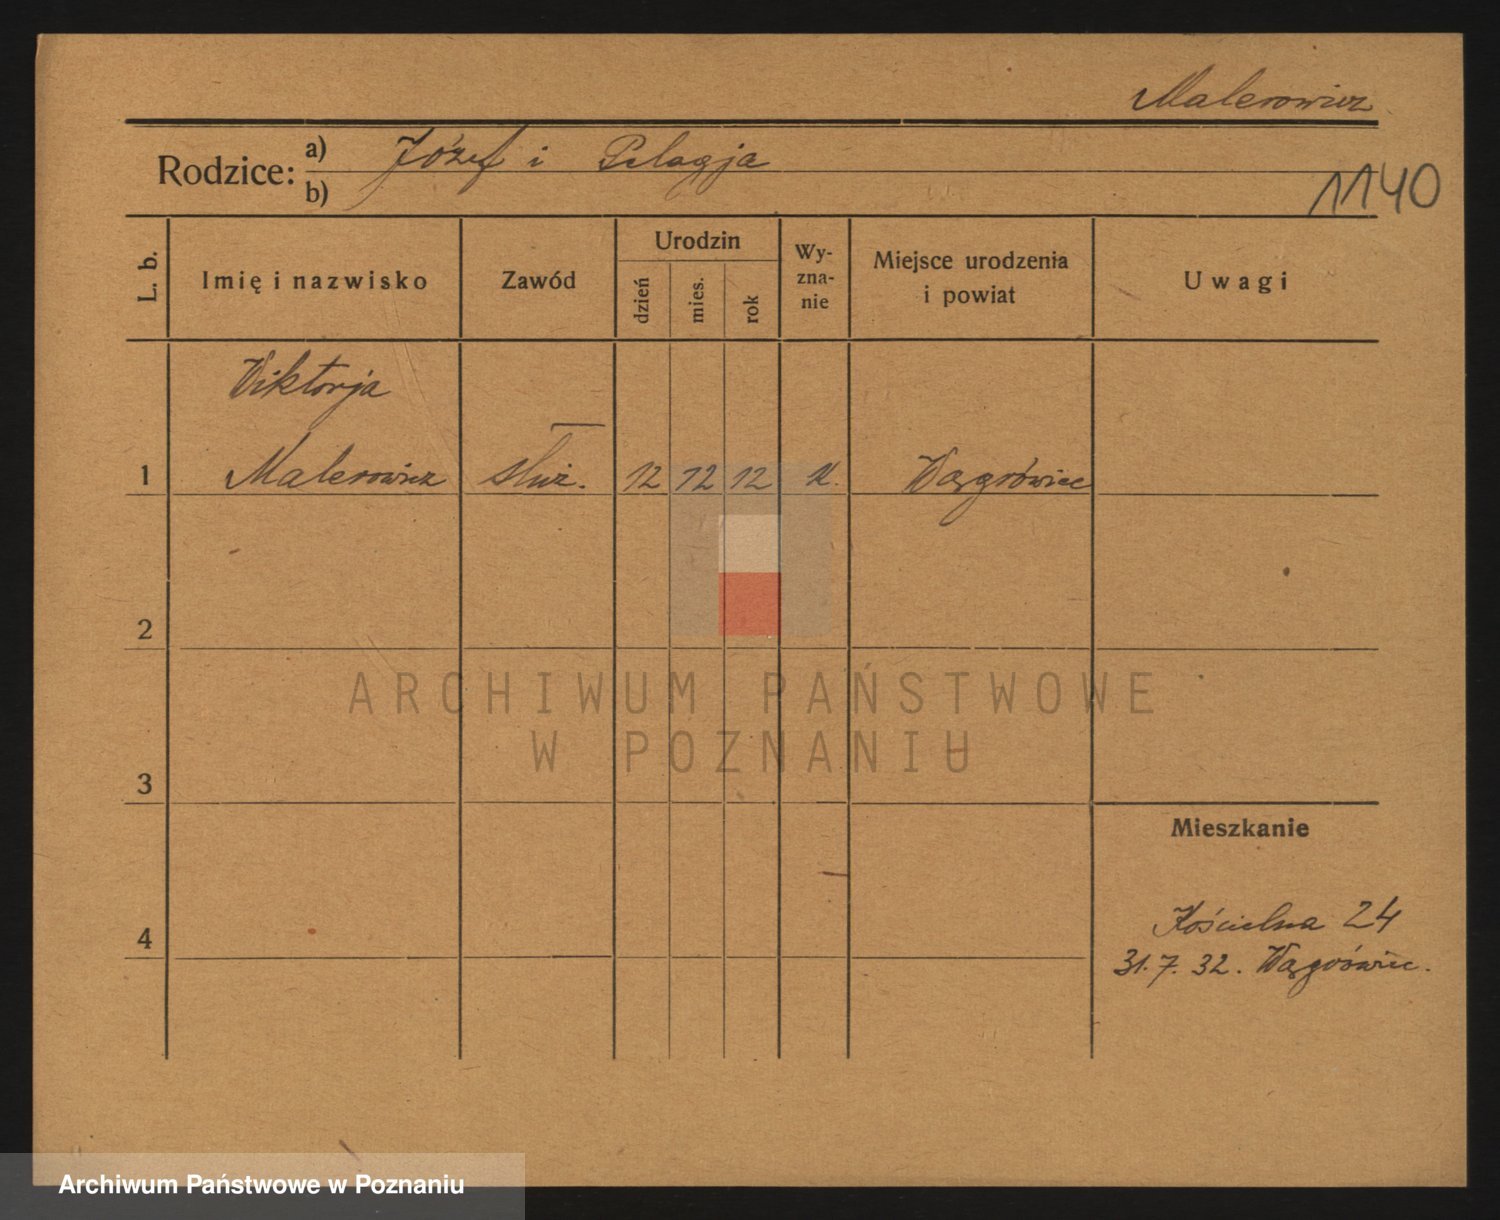 Malerowicz
Rodzice: a) Józef i Pelagja
b)
1140
L. b.
Imię i nazwisko
Zawód
Urodzin
dzień
mies.
rok
Wy-
zna-
nie
Miejsce urodzenia
i powiat
Uwagi
Wiktorja
1 Malerowicz służ. 12 12 12 k. Wągrówiec
2
3
4
Mieszkanie
Kościelna 24
31.7.32. Wągrówiec.
ARCHIWUM PAŃSTWOWE
W POZNANIU
Archiwum Państwowe w Poznaniu